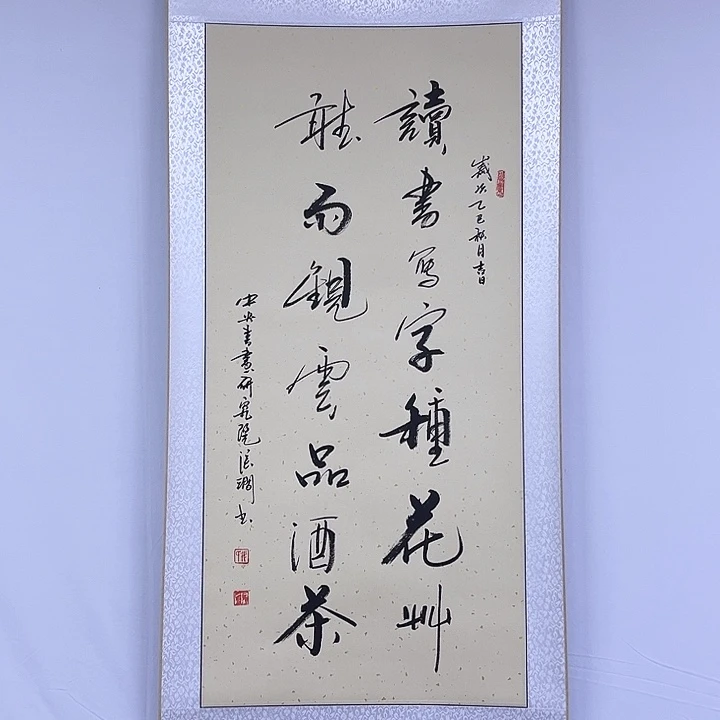 歲次乙巳秋月吉日
讀書寫字種花艸
聽雨觀雲品酒茶
中央書畫研究院